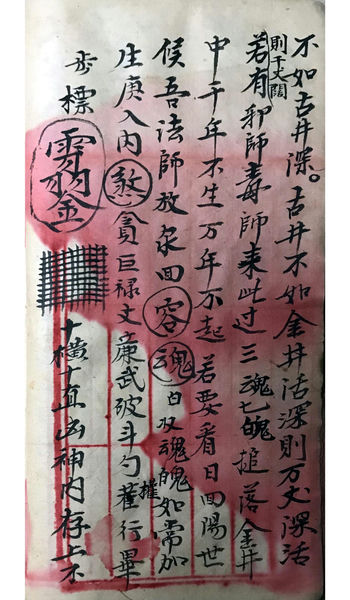 不如古井深。古井不如金井法深則万丈深活
則千丈闊
若有邪師毒師来此过三魂七魄搥落金井
中千年不生万年不起若要看日回陽世
候吾法師放衆回容魂白双魂魄如常加
生庚入内煞貪巨禄文廉武破斗勺 行畢
步標
十横十直凶神内存上不